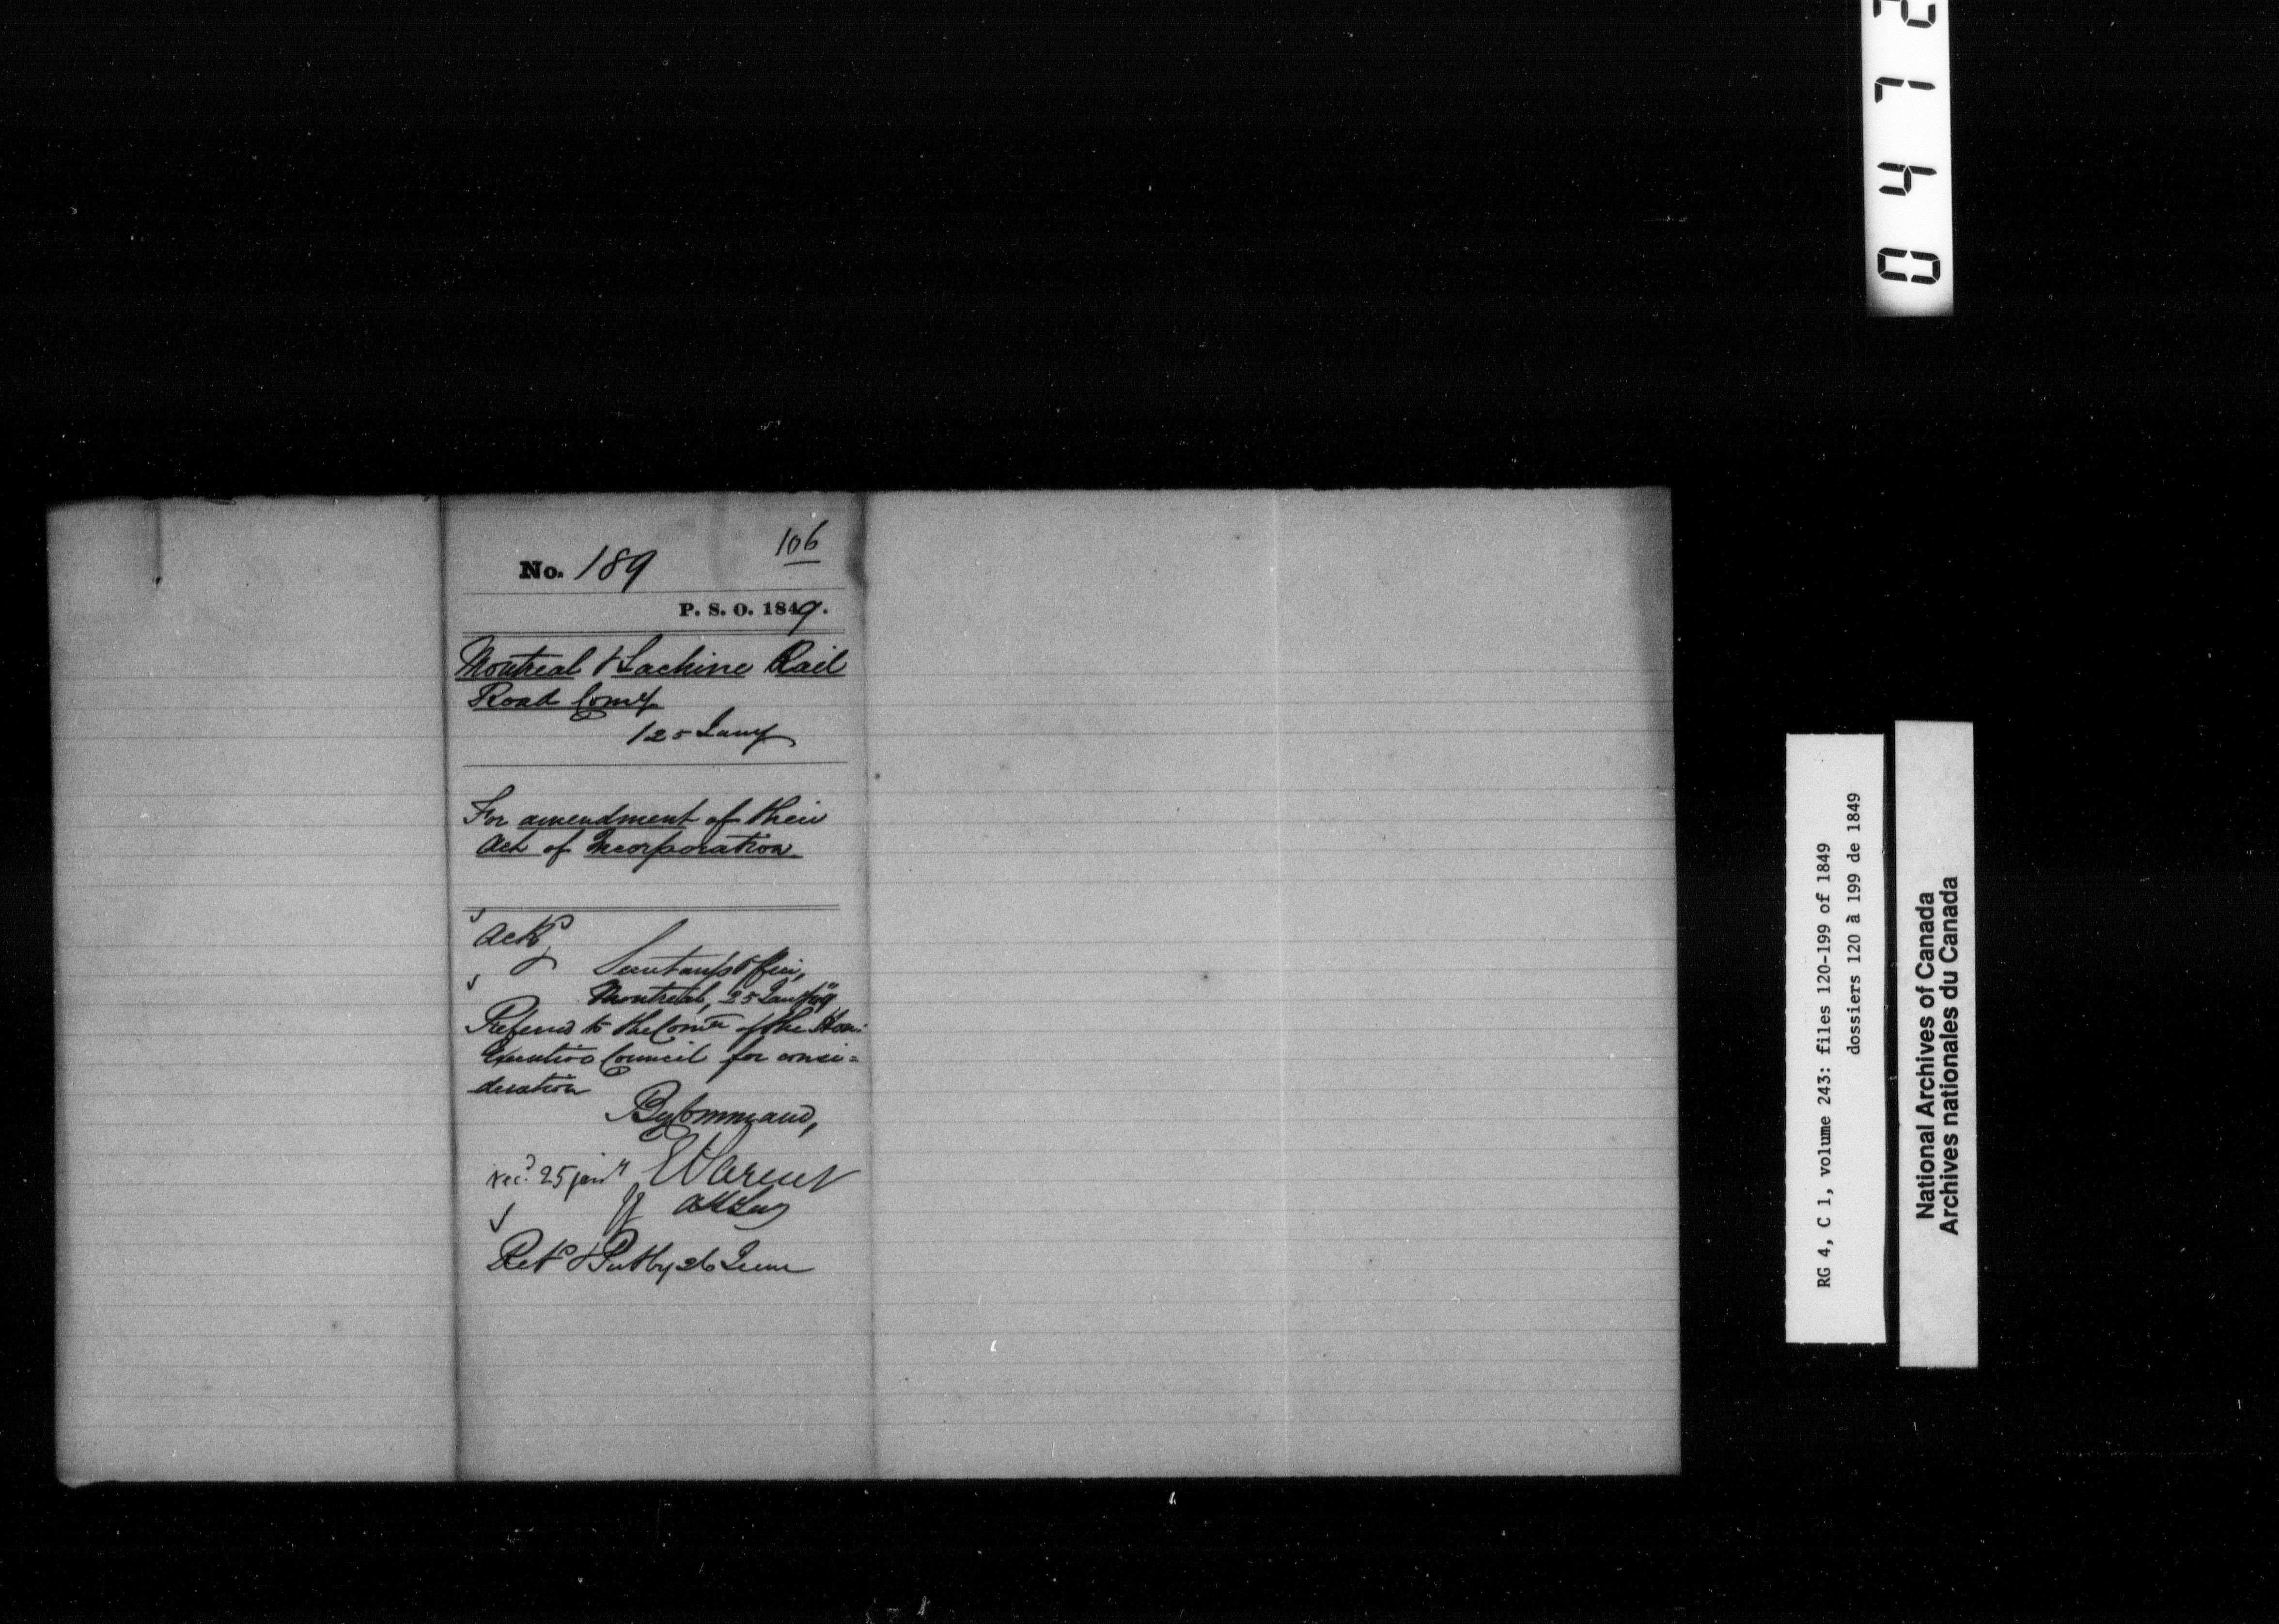 106
No. 189
P. S. O. 1849.
Montreal & Lachine Rail
Road Comy
25 Jany
For amendment of their
Act of Incorporation.
Ackd
Secretary's Office,
Montreal, 25 Jany 49
Referred to the Comee of the Hon:
Executive Council for consi=
deration
By Command,
E Parent
recd. 25 janr
Asst Secy
Retd & Put by 26 June
0 4 7 2
RG 4, C 1, volume 243: files 120-199 of 1849
dossiers 120 à 199 de 1849
National Archives of Canada
Archives nationales du Canada